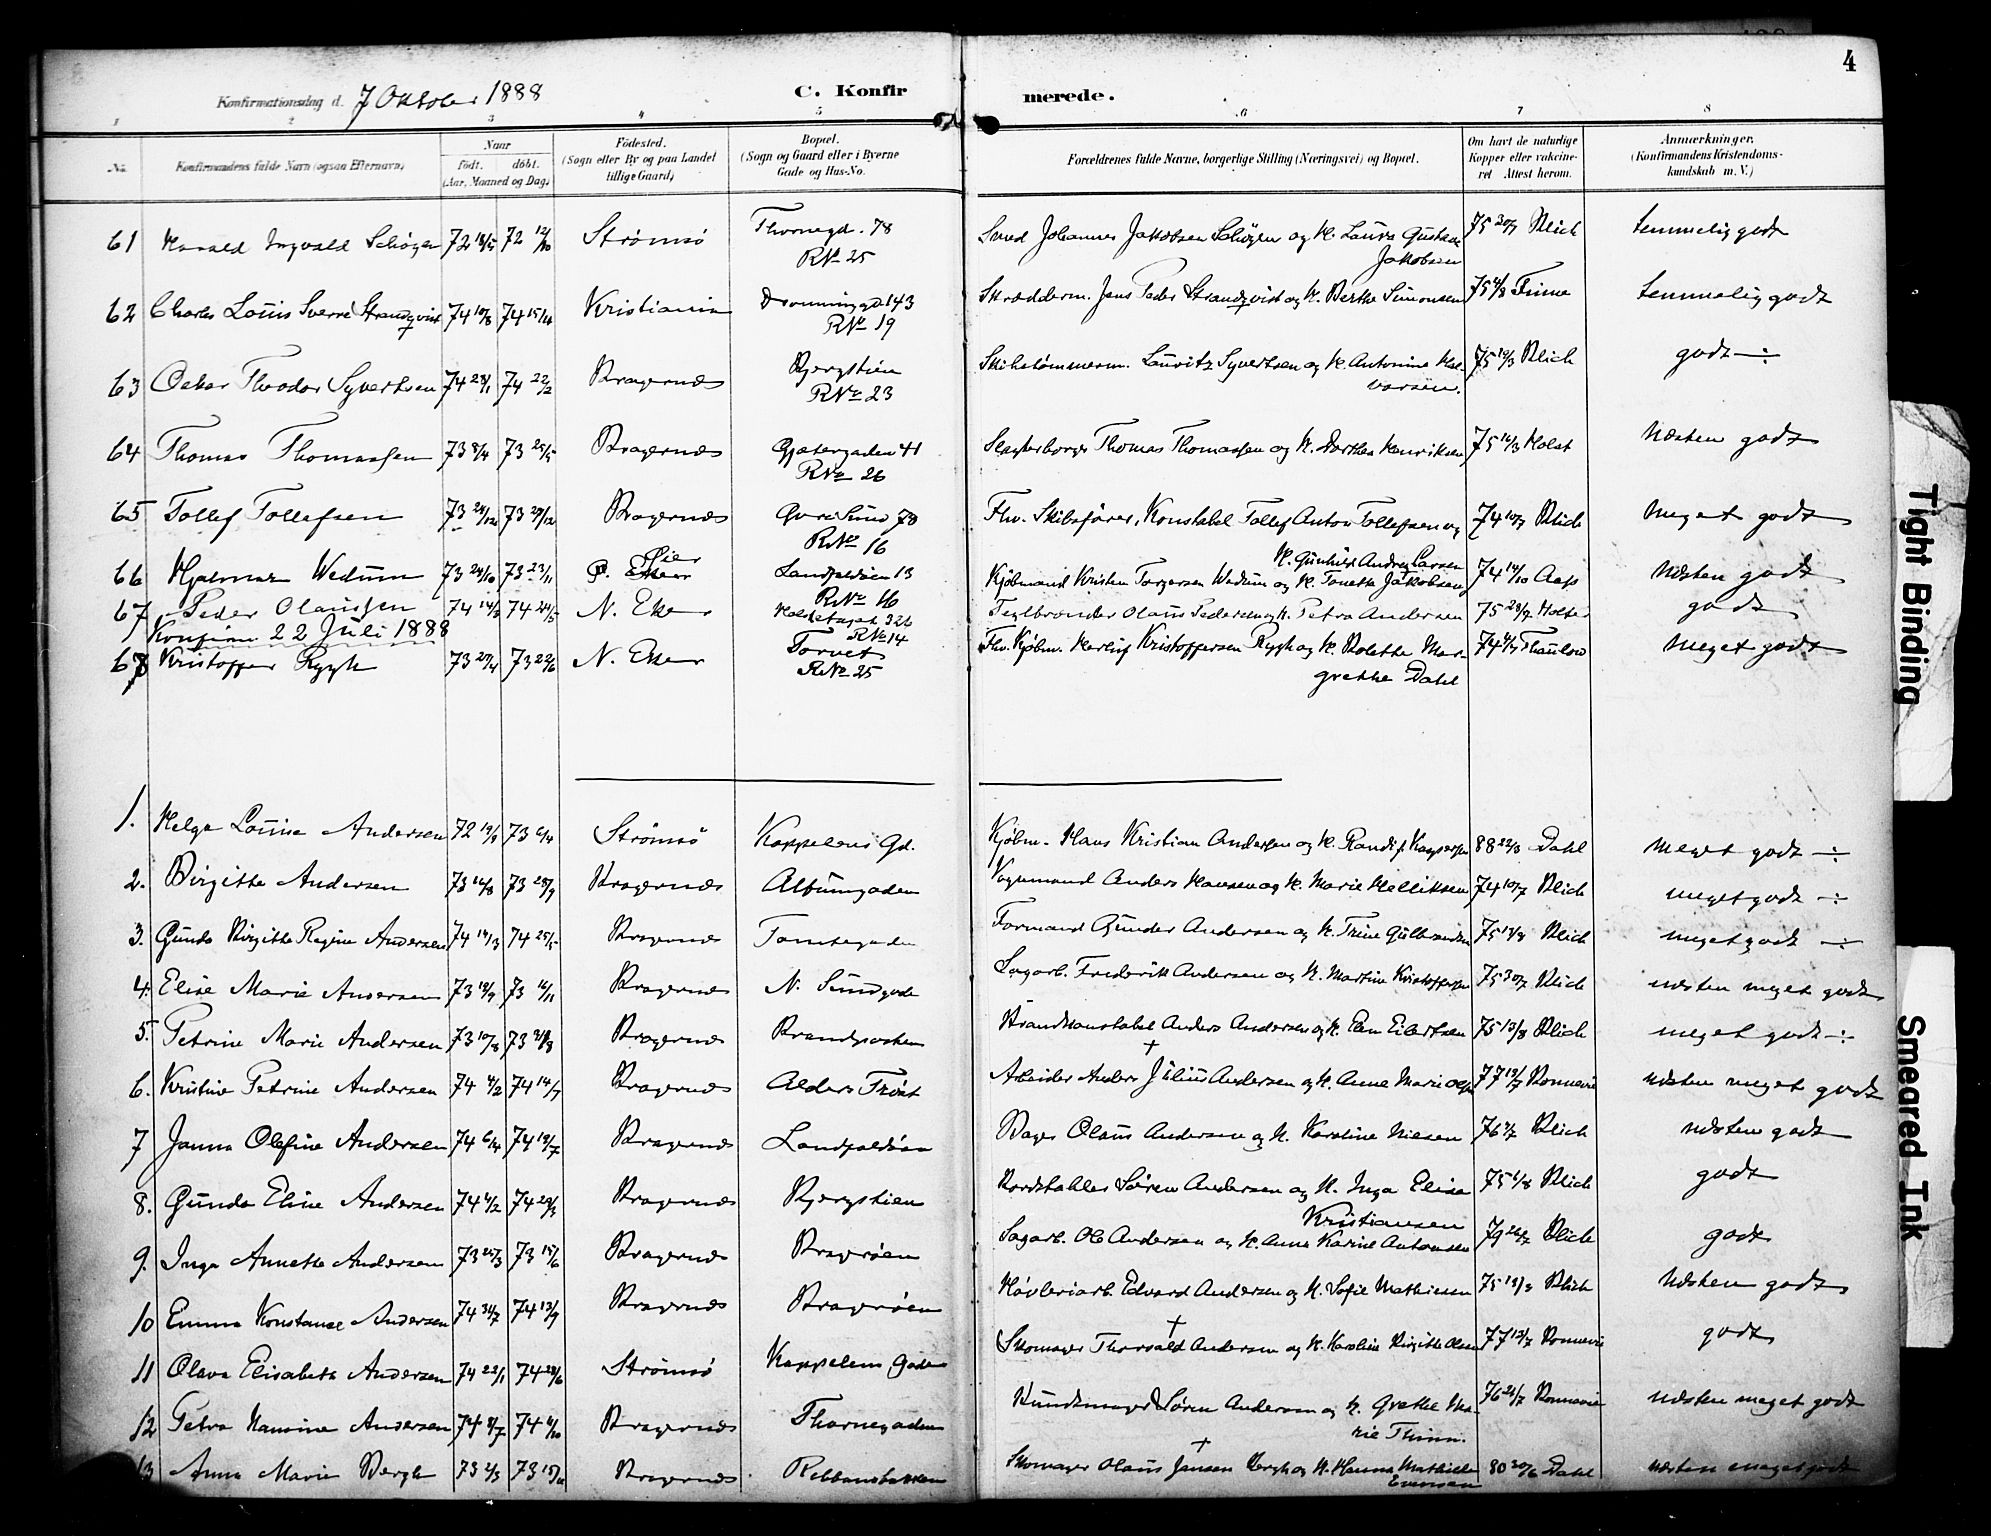 4
Konfirmationsdag d. 7 Oktober 1888
C. Konfir merede.
1 2 3 4 5 6 7 8
No. Konfirmandens fulde Navn (ogsaa Efternavn) Naar født. døbt. (Aar, Maaned og Dag) Födested. (Sogn eller By og paa Landet tillige Gaard) Bopæl. (Sogn og Gaard eller i Byerne Gade og Hus-No. Forældrenes fulde Navne, borgerlige Stilling (Næringsvei) og Bopæl. Om havt de naturlige Kopper eller vakcineret Attest herom. Anmærkninger. (Konfirmandens Kristendomskundskab m. V.)
61 Harald Ingvald Schøyen 72 18/5 72 12/10 Strømsø Thornegd. 78 Smed Johannes Jakobsen Schøyen og H. Laura Gustava 75 30/7 Blich temmelig godt
R No 25 Jakobsen
62 Charles Louis Sverre Strandqvist 74 10/8 74 15/11 Kristiania Dronninggd 143 Skrædderm. Jens Peder Strandqvist og H. Berthe Simonsen 75 Finne temmelig godt
R No 19
63 Oskar Theodor Syvertsen 74 74 22/2 Bragernæs Bjergstien Skibstømmerm. Lauritz Syvertsen og H. Antonine Hal- 75 19/3 Blich godt ÷
R No 23 vorsen.
64 Thomas Thomassen 73 8/4 73 25/5 Bragernæs Gjetergaden 41 Thomas Thomassen og H. Dorthea Henriksen 75 16/3 Holst Næsten godt
R No 26
65 Tollef Tollefsen 73 73 29/12 Bragernæs Øvre Sund 78 Fhv. Skibsfører, Konstabel Tollef Anton Tollefsen og 74 10/7 Blich Meget godt
R No 16 H. Gunhild Andrea Larsen
66 Hjalmar Wedum 73 24/10 73 23/11 Ø. Eker Landfaldøen 13 Kjøbmand Kristen Torgersen Wedum og H. Tonette Jakobsen 74 14/10 Aass Næsten godt
R No 16
67 Peder Olaussen 74 14/3 74 24/5 N. Eker 326 Teglbrænder Olaus Pedersen og H. Petra Andersen 75 28/9 Holter godt
Konfirm 22 Juli 1888 R No 14
68 Kristoffer Rygh 73 27/4 73 22/6 N. Eker Torvet Fhv. Kjøbm. Herluf Kristoffersen Rygh og H. Bolette Mar- 74 Thaulow meget godt
R No 25 grethe Dahl
1. Helga Louise Andersen 72 19/9 73 6/4 Strømsø Kappelens Gd. Kjøbm. Hans Kristian Andersen og H. Randi Kaspersen 88 22/3 Dahl Meget godt ÷
2. Birgitte Andersen 73 16/8 73 28/9 Bragernæs Albumgaden Vognmand Anders Hansen og H. Marie Helliksen 74 10/7 Blich meget godt ÷
3. Gunda Birgitte Regine Andersen 74 19/3 74 25/5 Bragernæs Tomtegaden Formand Gunder Andersen og H. Trine Gulbrandsen 75 13/8 Blich meget godt ÷
4. Elise Marie Andersen 73 19/9 73 16/11 Bragernæs N. Sundgade Sagarb. Frederik Andersen og H. Martine Kristoffersen 75 30/7 Blich næsten meget godt
5. Petrine Marie Andersen 73 10/8 73 31/8 Bragernæs Brandposten Brandkonstabel Anders Andersen og H. Elen Eilertsen 75 13/8 Blich meget godt ÷
6. Kristine Petrine Andersen 74 4/2 74 14/7 Bragernæs Alders Trøst Arbeider Anders Julius Andersen og H. Anne Marie Olsen 77 13/7 Ronnevie næsten meget godt
7 Janna Olefine Andersen 74 6/4 74 19/7 Bragernæs Landfaldøen Bager Olaus Andersen og H. Karoline Nielsen 76 Blich næsten godt
8. Gunda Elise Andersen 74 4/2 74 29/3 Bragernæs Bjergstien Bordstabler Søren Andersen og H. Inga Elise 75 6/8 Blich godt
Kristiansen
9. Inga Annette Andersen 73 25/3 73 15/6 Bragernæs Bragerøen Sagarb. Ole Andersen og H. Anna Karine Antonsen 79 Blich godt
10 Emma Konstanse Andersen 74 74 13/9 Bragernæs Bragerøen Høvleriarb. Edvard Andersen og H. Sofie Mathiesen 75 19/3 Blich Næsten godt
11 Olava Elisabeth Andersen 74 22/1 74 28/6 Strømsø Kappelens Gade Skomager Thorvald Andersen og H. Karoline Birgitte Olsen 77 13/7 Ronnevie godt
12 Petra Hansine Andersen 74 8/7 74 4/10 Bragernæs Thornegaden Bundtmager Søren Andersen og H. Grethe Ma- 76 21/7 Ronnevie næsten meget godt
rie Thinn.
13 Anna Marie Bergh 73 2/3 73 Bragernæs Rebbansbakken Skomager Olaus Jansen Bergh og H. Hanna Mathilde 80 20/6 Dahl næsten meget godt
Evensen
Tight Binding
Smeared Ink